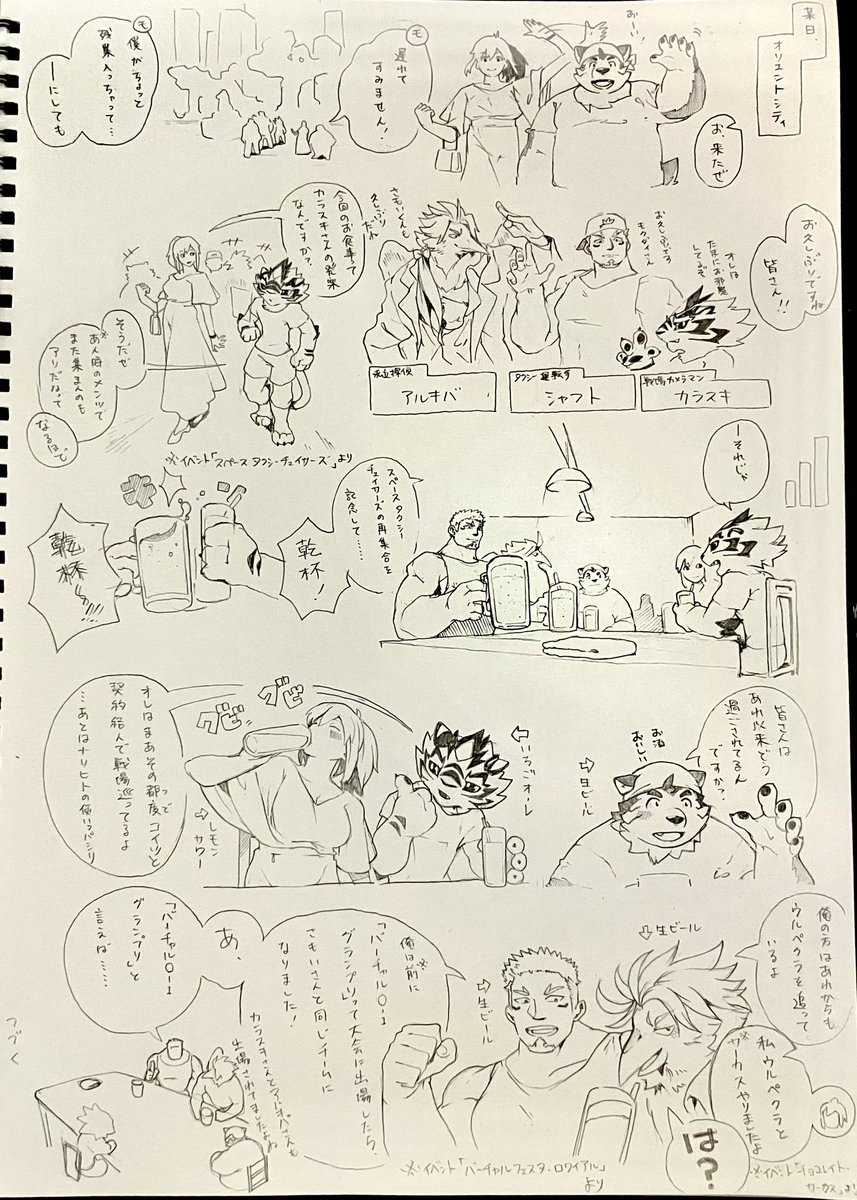 某日、
オリエントシティ
おーい!
お、来たぜ
モ
遅れて
すみません!
モ
僕がちょっと
残業入っちゃって…
ーにしても
お久しぶりですね
皆さん!!
オレは
たまにお邪魔
してるぞ
お久しぶりです
モクダイさん
さもいくんも
久しぶり
だね
戦場カメラマン
カラスキ
タクシー運転手
シャフト
私立探偵
アルキバ
今回のお食事って
カラスキさんの発案
なんですか?
そうだぜ
※あん時のメンツで
また集まんのも
アリだなって
なるほど
※イベント「スペースタクシーチェイサーズ」より
ーそれじゃ
スペースタクシー
チェイサーズの再集合を
記念して……
乾杯!
乾杯~
皆さんは
あれ以来どう
過ごされてるん
ですか?
お酒
おいしい
⇨生ビール
⇦いちごオーレ
グビ
グビ
⇨レモン
サワー
オレはまあその都度コイツと
って
契約結んで戦場巡ってるよ
…あとはナリヒトの使いっパシリ
で
俺の方はあれからも
ウルペクラを追って
いるよ
私ウルペクラと
※サーカスやりましたよ
は?
※イベント「チョコレイト・
サーカス」より
⇩生ビール
⇨生ビール
※
俺は前に
「バーチャルO-1
グランプリ」って大会に出場したら、
さもいさんと同じチームに
なりました!
カラスキさんとアルキバさんも
出場されてましたよね
あ、
「バーチャルO-1
グランプリ」と
言えば……
※イベント「バーチャルフェスタ・ロワイアル」
より
つづく